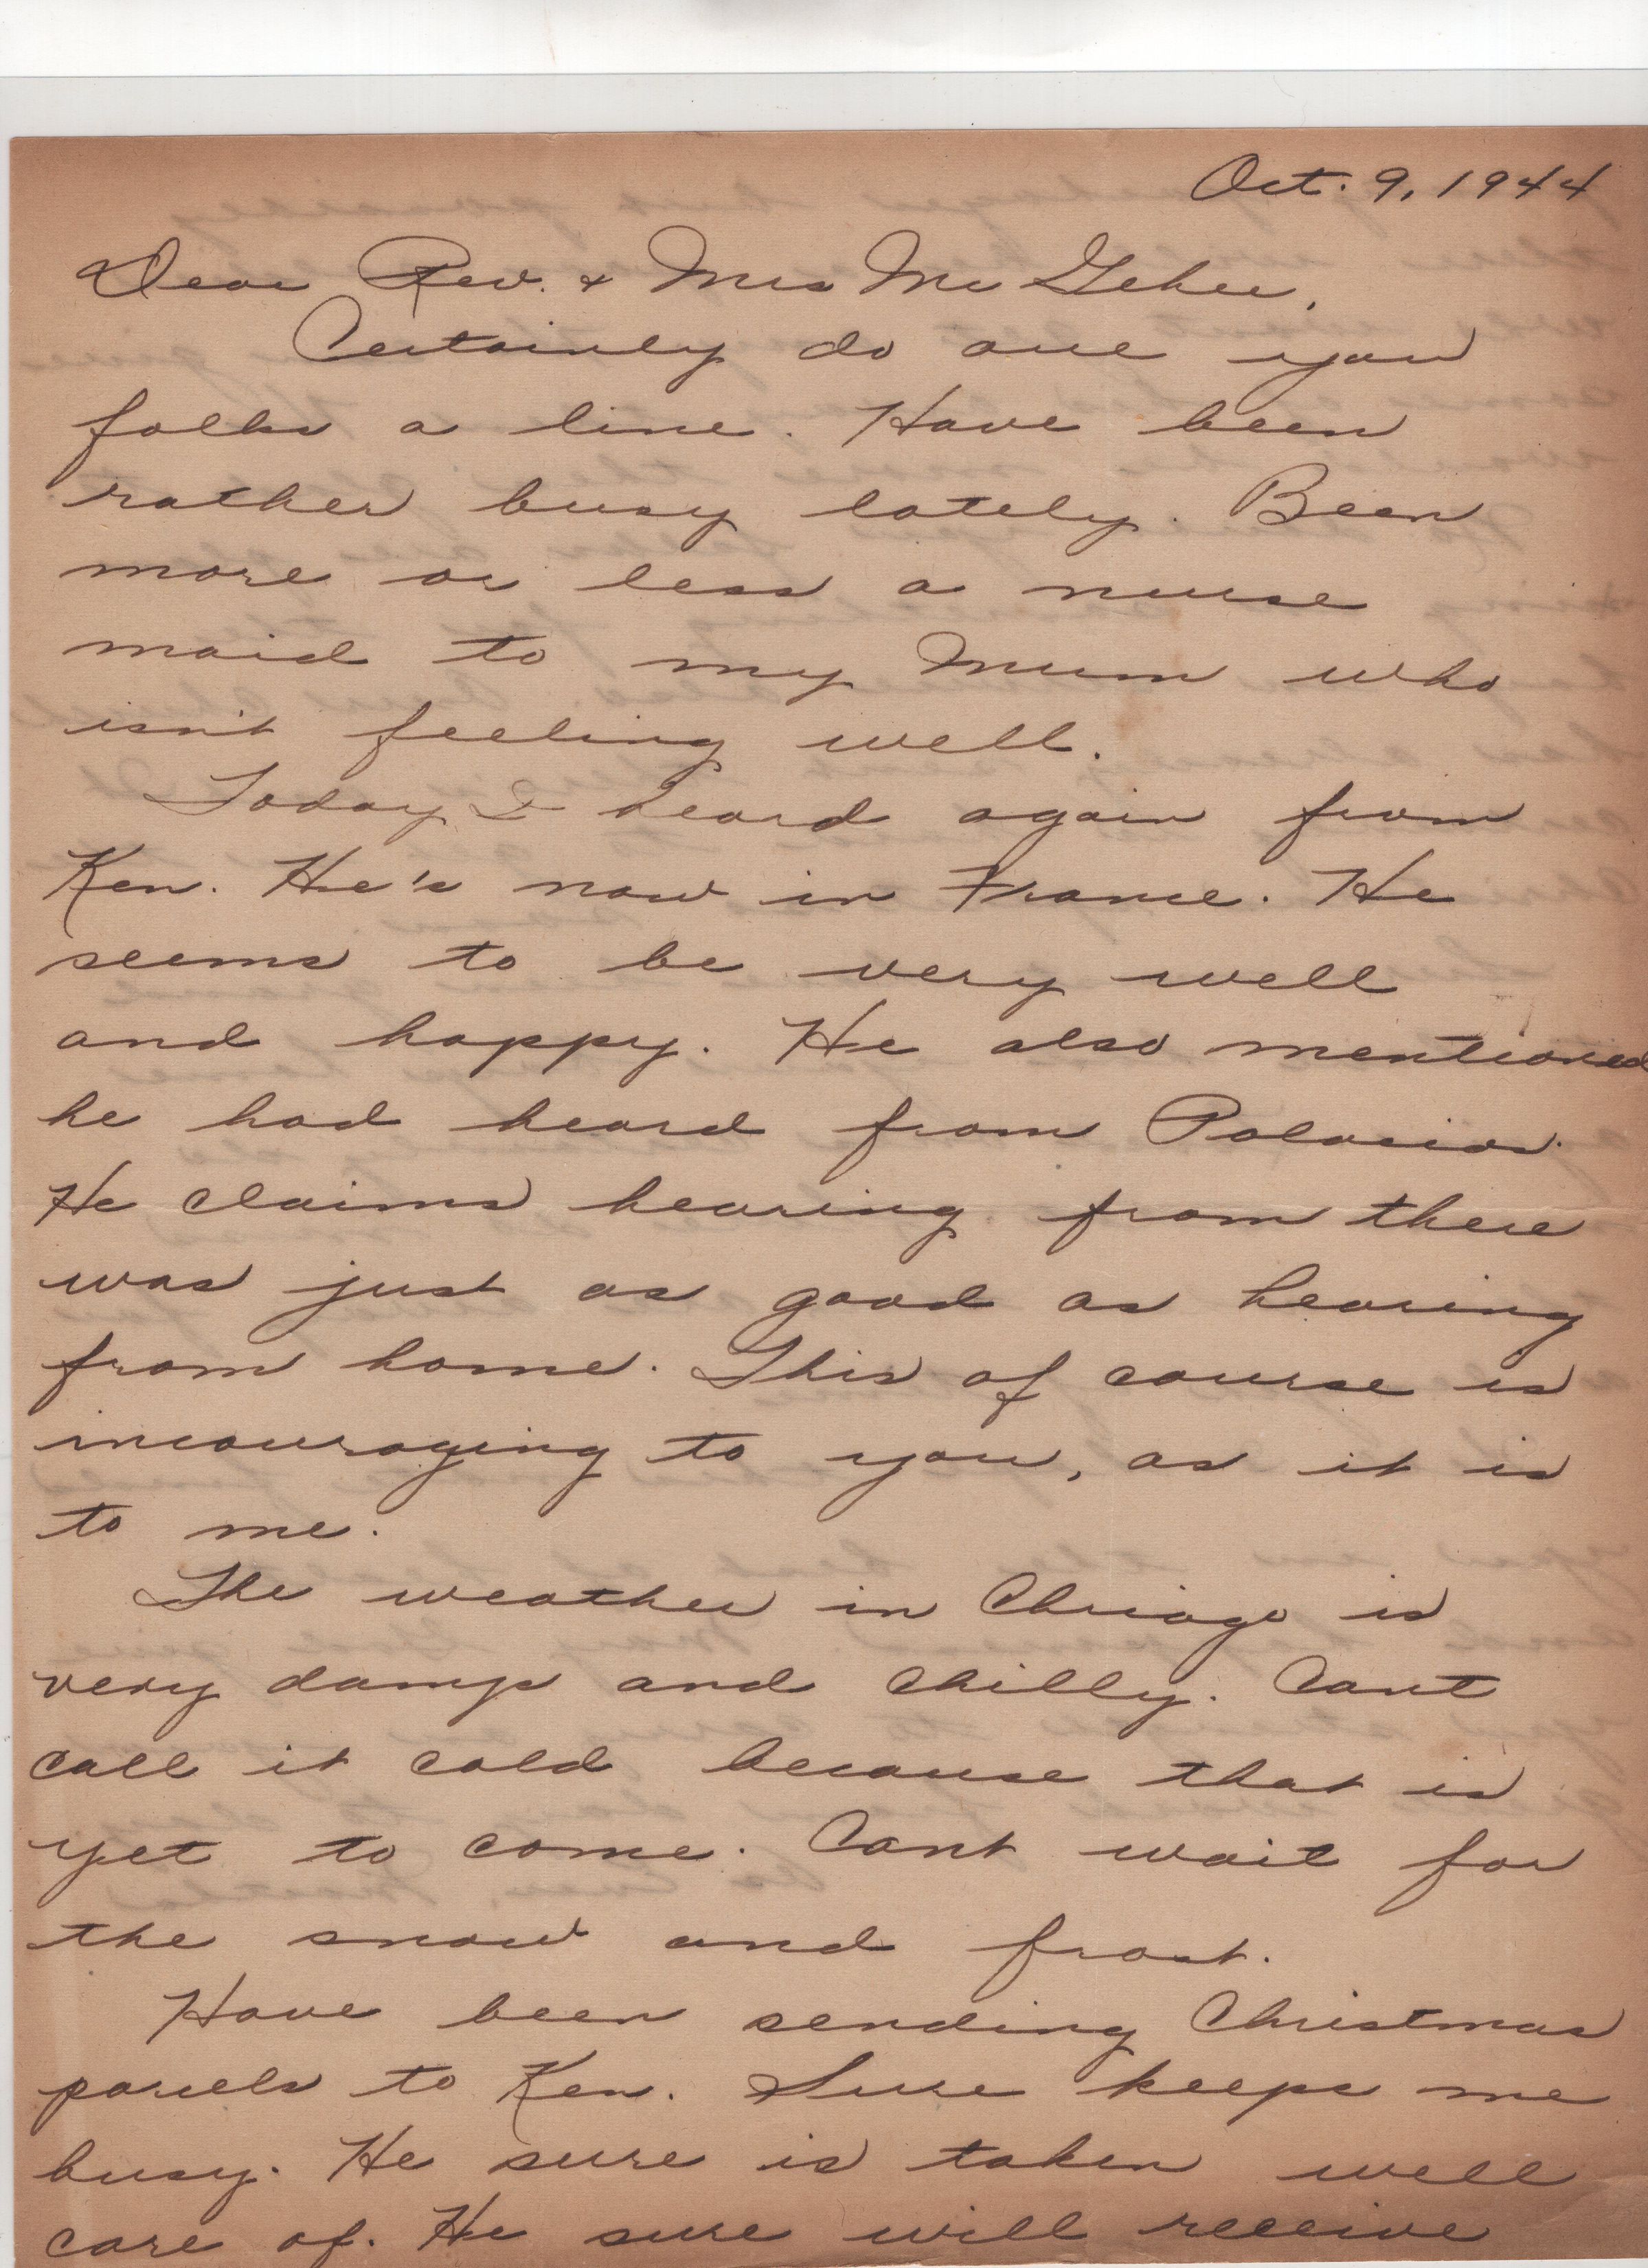 Oct. 9, 1944
Dear Rev. & Mrs Mc Gehee,
Certainly do owe you
folks a line. Have been
rather busy lately. Been
more or less a nurse
maid to my Mum who
isn't feeling well.
Today I heard again from
Ken. He's now in France. He
seems to be very well
and happy. He also mentioned
he had heard from Palacios.
He claims hearing from there
was just as good as hearing
from home. This of course is
incouraging to you, as it is
to me.
The weather in Chicago is
very damp and chilly. Cant
call it cold because that is
yet to come. Cant wait for
the snow and frost.
Have been sending Christmas
parcels to Ken. Sure keeps me
busy. He sure is taken well
care of. He sure will receive